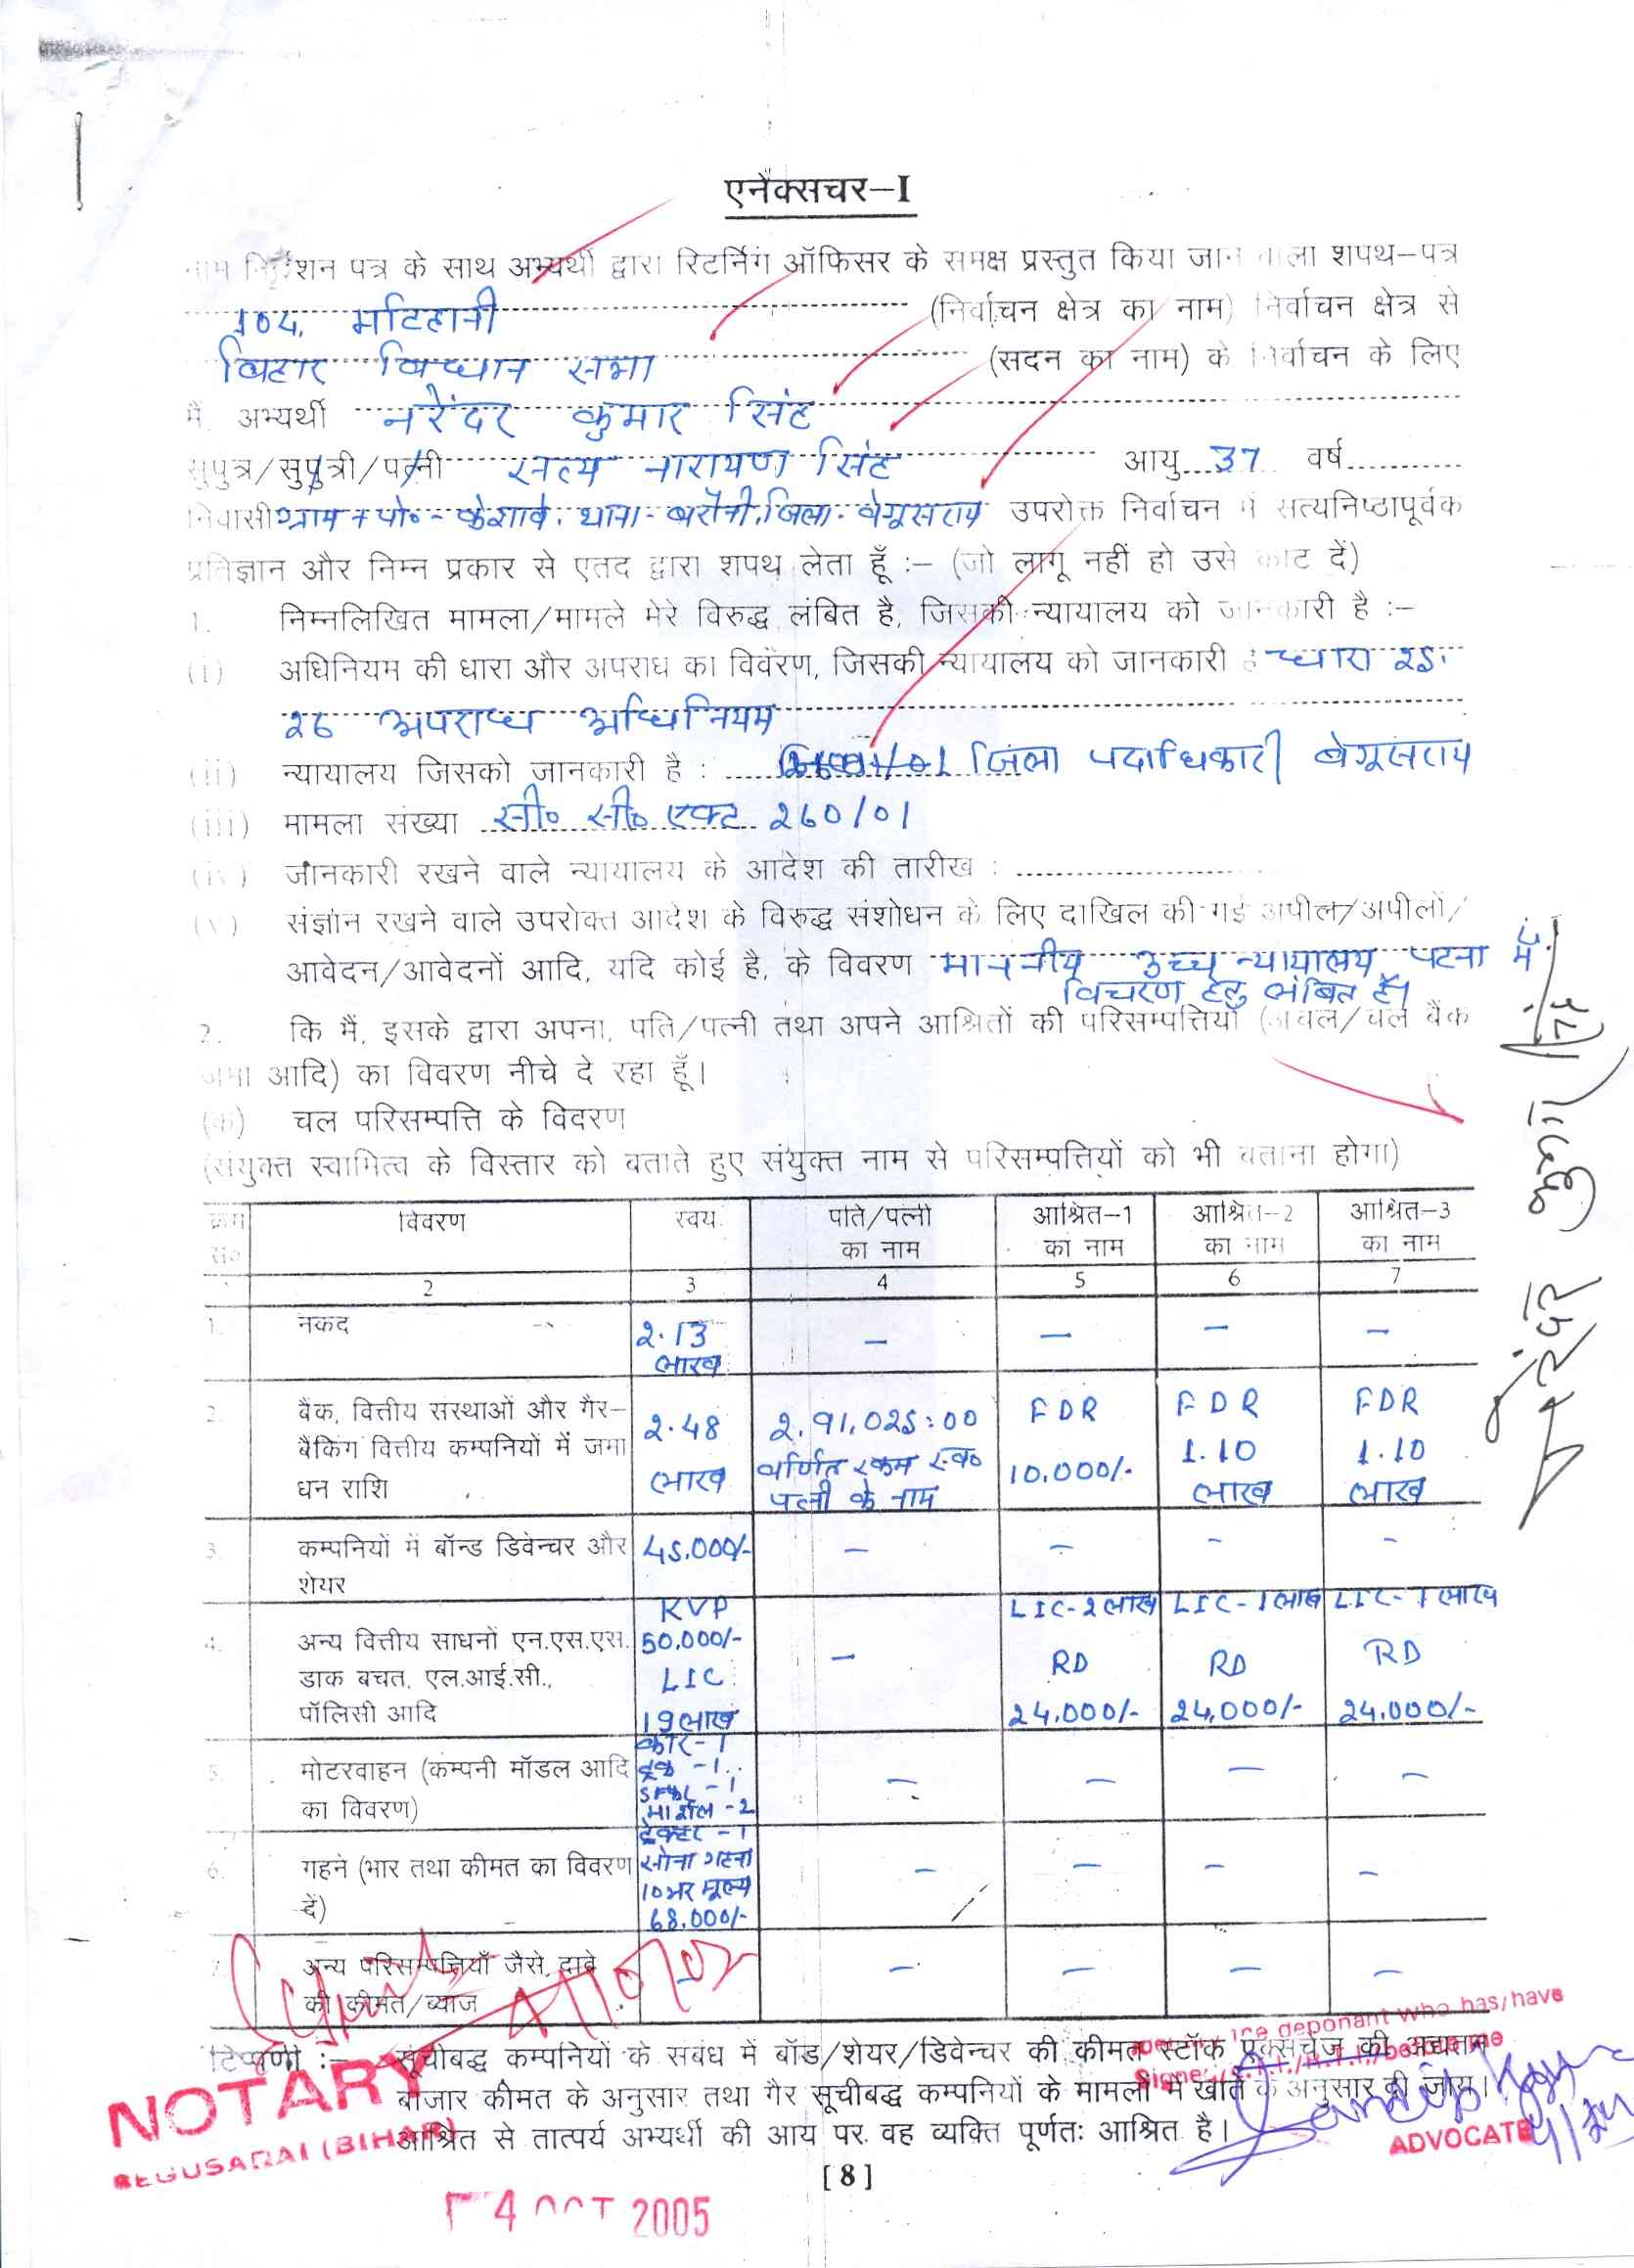 एनैक्सचर–I
नाम निर्देशन पत्र के साथ अभ्यर्थी द्वारा रिटर्निंग ऑफिसर के समक्ष प्रस्तुत किया जाने वाला शपथ–पत्र
104. मटिहानी (निर्वाचन क्षेत्र का नाम) निर्वाचन क्षेत्र से
बिहार विधान सभा (सदन का नाम) के निर्वाचन के लिए
मैं अभ्यर्थी नरेंदर कुमार सिंह
सुपुत्र/सुपुत्री/पत्नी सत्य नारायण सिंह आयु 37 वर्ष
निवासी ग्राम + पो०- केशावे, थाना- बरौनी, जिला- बेगूसराय उपरोक्त निर्वाचन में सत्यनिष्ठापूर्वक
प्रतिज्ञान और निम्न प्रकार से एतद द्वारा शपथ लेता हूँ :– (जो लागू नहीं हो उसे काट दें)
1. निम्नलिखित मामला/मामले मेरे विरुद्ध लंबित है, जिसकी न्यायालय को जानकारी है :–
(i) अधिनियम की धारा और अपराध का विवरण, जिसकी न्यायालय को जानकारी है धारा 25.
26 अपराध अधिनियम
(ii) न्यायालय जिसको जानकारी है : जिला पदाधिकारी बेगूसराय
(iii) मामला संख्या सी० सी० एक्ट 260/01
(iv) जानकारी रखने वाले न्यायालय के आदेश की तारीख :
(v) संज्ञान रखने वाले उपरोक्त आदेश के विरुद्ध संशोधन के लिए दाखिल की गई अपील/अपीलों/
आवेदन/आवेदनों आदि, यदि कोई है, के विवरण माननीय उच्च न्यायालय पटना में
विचरण हेतु लंबित है।
2. कि मैं, इसके द्वारा अपना, पति/पत्नी तथा अपने आश्रितों की परिसम्पत्तियों (अचल/चल बैंक
जमा आदि) का विवरण नीचे दे रहा हूँ।
(क) चल परिसम्पत्ति के विवरण
(संयुक्त स्वामित्व के विस्तार को बताते हुए संयुक्त नाम से परिसम्पत्तियों को भी बताना होगा)
क्रम सं० विवरण स्वयं पति/पत्नी का नाम आश्रित–1 का नाम आश्रित–2 का नाम आश्रित–3 का नाम
2 3 4 5 6 7
1. नकद 2.13 लाख – – – –
2. बैंक, वित्तीय संस्थाओं और गैर– 2.48 2,91,025:00 FDR FDR FDR
बैंकिंग वित्तीय कम्पनियों में जमा लाख वर्णित रकम स्व० 10,000/- 1.10 1.10
धन राशि पत्नी के नाम लाख लाख
3. कम्पनियों में बॉन्ड डिवेन्चर और 45,000/- – – – –
शेयर
KVP LIC-2 लाख LIC-1 लाख LIC-1 लाख
4. अन्य वित्तीय साधनों एन.एस.एस. 50,000/- –
डाक बचत, एल.आई.सी., LIC RD RD RD
पॉलिसी आदि 19 लाख 24,000/- 24,000/- 24,000/-
कार-1
5. मोटरवाहन (कम्पनी मॉडल आदि ट्रक -1 – – – –
का विवरण) मार्शल -2
ट्रेक्टर -1
6. गहने (भार तथा कीमत का विवरण सोना गहना – – – –
दें) 10 भर मूल्य
68,000/-
7. अन्य परिसम्पत्तियाँ जैसे, दावे – – – – –
की कीमत/ब्याज
टिप्पणी :– सूचीबद्ध कम्पनियों के सबंध में बॉड/शेयर/डिवेन्चर की कीमत स्टॉक एक्सचेंज की अद्यतन
बाजार कीमत के अनुसार तथा गैर सूचीबद्ध कम्पनियों के मामलों में खाते के अनुसार दी जाय।
आश्रित से तात्पर्य अभ्यर्थी की आय पर वह व्यक्ति पूर्णतः आश्रित है।
[ 8 ]
नरेंदर कुमार सिंह
NOTARY
BEGUSARAI (BIHAR)
4 OCT 2005
deponant who has/have
before me
ADVOCATE